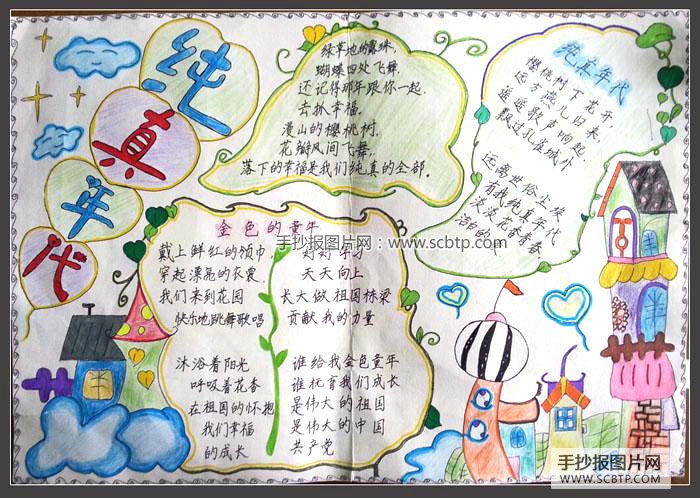 纯真年代
绿草地的露珠,
蝴蝶四处飞舞,
还记得那年跟你一起,
去抓幸福,
漫山的樱桃树,
花瓣风间飞舞,
落下的幸福是我们纯真的全部。
纯真年代
樱桃树下花开,
远方燕儿归来,
遥遥歌声响起,
飘过孔雀城外
远离世俗尘埃
有我纯真年代
淡淡花香青春,
金色的童年
戴上鲜红的领巾
穿起漂亮的衣裳
我们来到花园
快乐地跳舞歌唱
沐浴着阳光
呼吸着花香
在祖国的怀抱
我们幸福
的成长
好好学习
天天向上
长大做祖国栋梁
贡献我的力量
谁给我金色童年
谁托育我们成长
是伟大的祖国
是伟大的中国
共产党
手抄报图片网:www.scbtp.com
手抄报图片网
WWW.SCBTP.COM